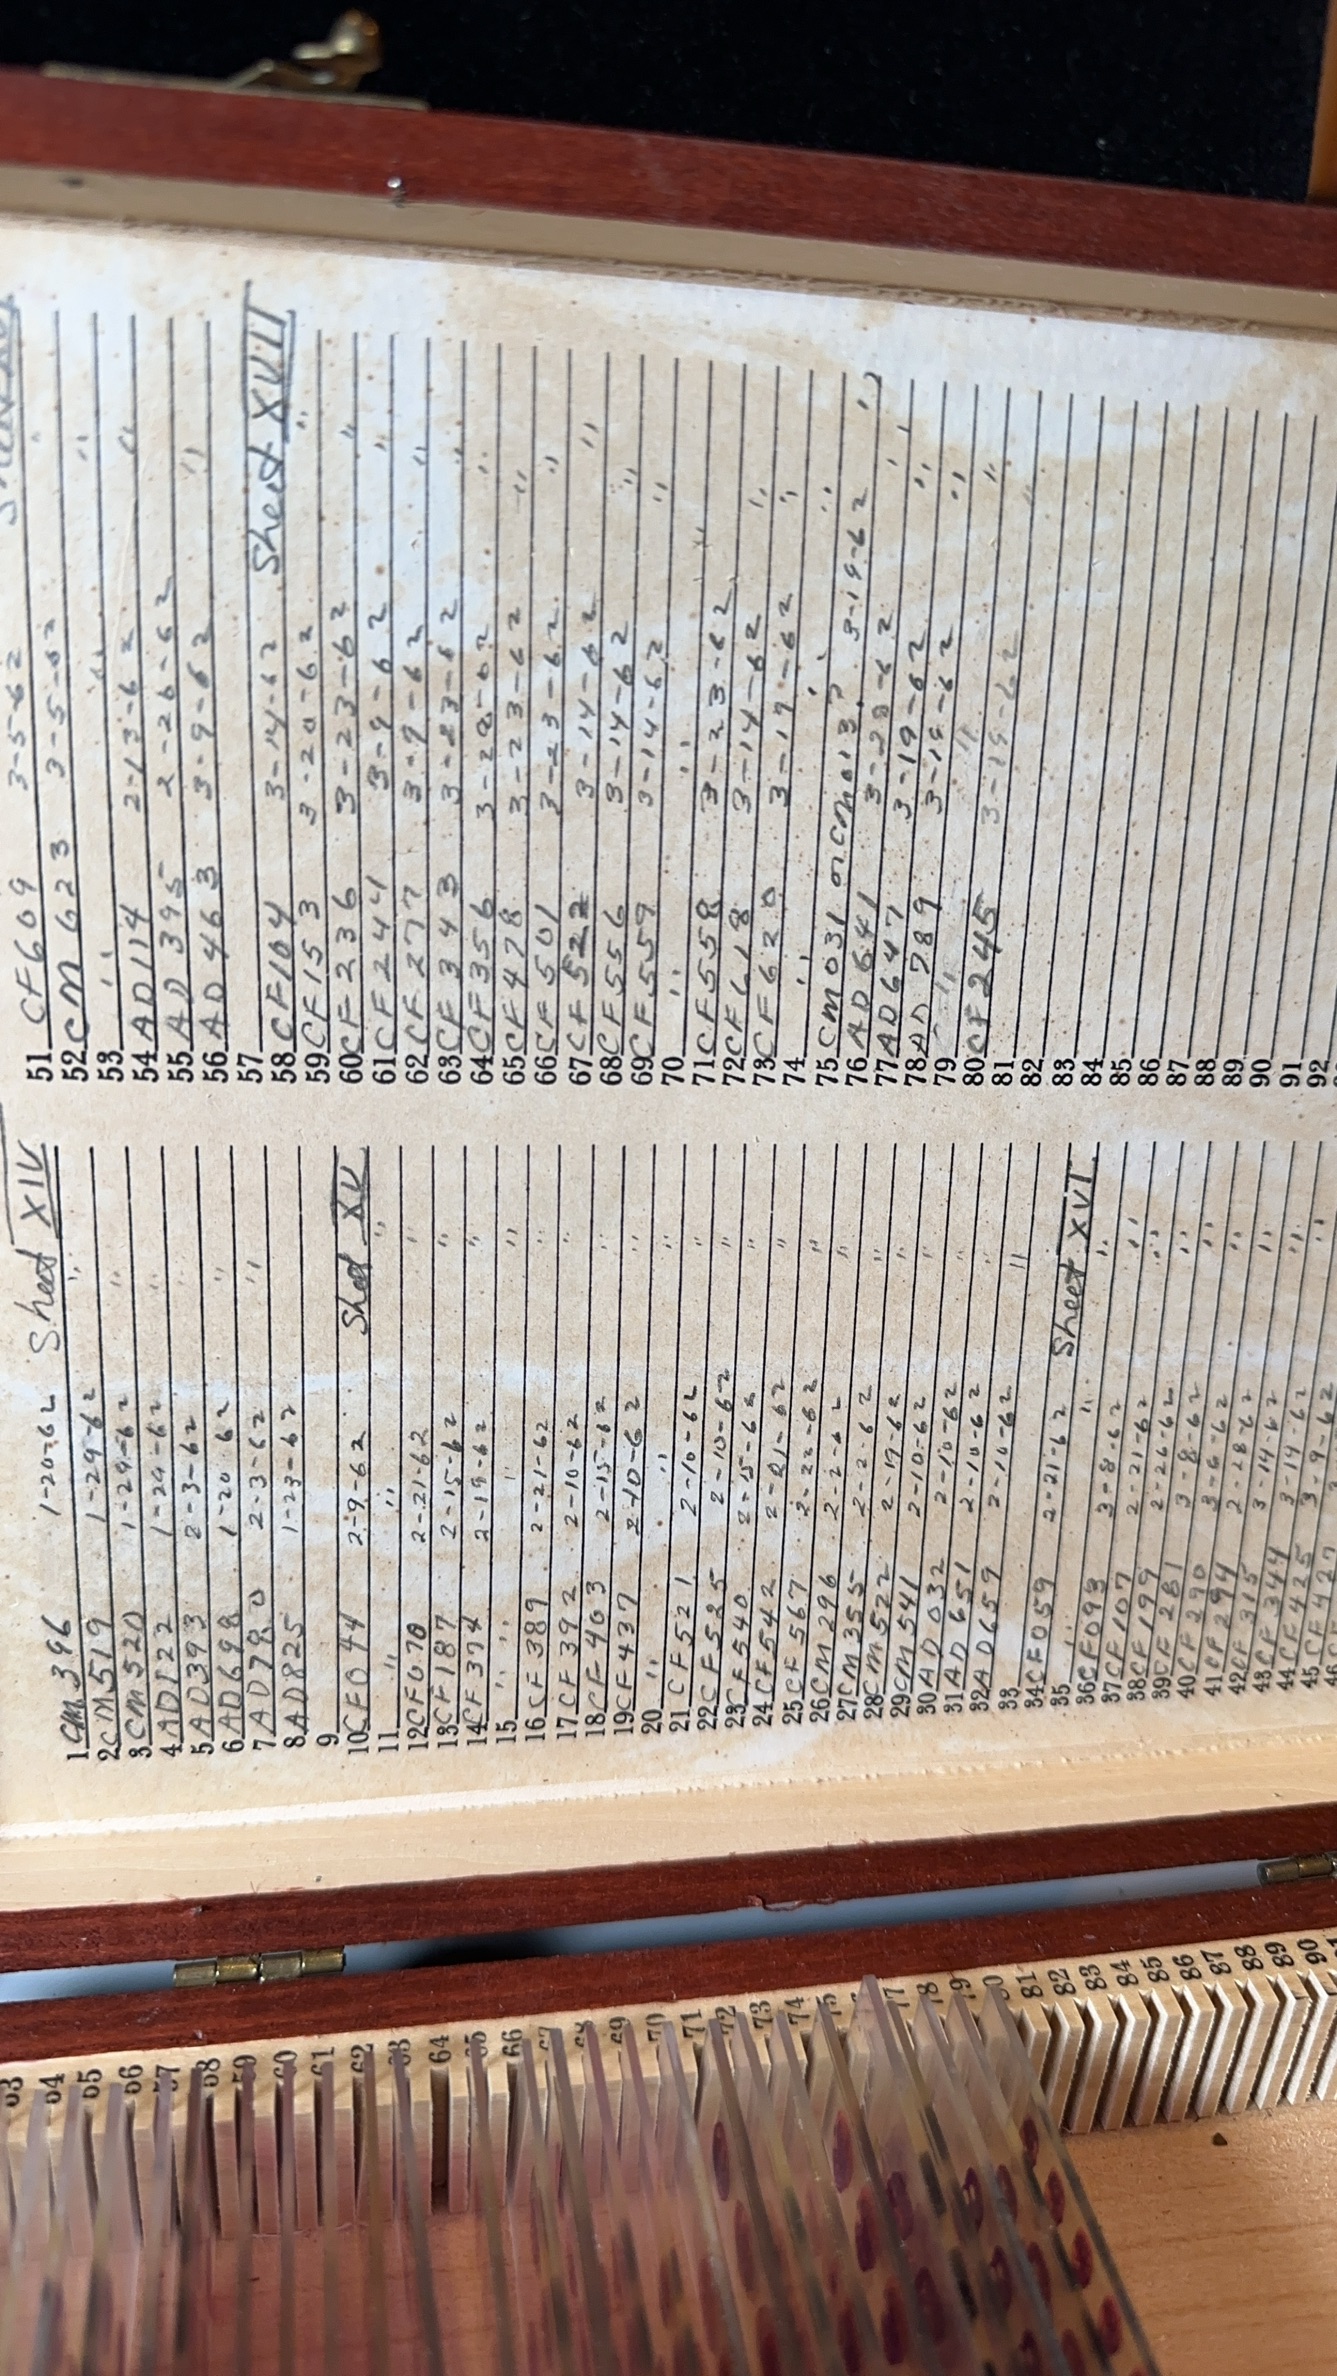 1 CM396 1-20-62 Sheet XIV
2 CM519 1-29-62 "
3 CM520 1-29-62 "
4 AD122 1-29-62 "
5 AD393 2-3-62
6 AD698 1-20-62 "
7 AD780 2-3-62 "
8 AD825 1-23-62
9
10 CF044 2-9-62 Sheet XV
11 " " "
12 CF070 2-21-62 "
13 CF187 2-15-62 "
14 CF374 2-19-62 "
15 " " "
16 CF389 2-21-62 "
17 CF392 2-10-62 "
18 CF403 2-15-62 "
19 CF437 2-10-62 "
20 " " "
21 CF521 2-10-62 "
22 CF525 2-10-62 "
23 CF540 2-15-62 "
24 CF542 2-21-62 "
25 CF567 2-22-62 "
26 CM296 2-2-62 "
27 CM355 2-2-62 "
28 CM522 2-19-62 "
29 CM541 2-10-62 "
30 AD032 2-10-62 "
31 AD651 2-10-62 "
32 AD659 2-10-62 "
33
34 CF059 2-21-62 Sheet XVI
35 " " "
36 CF093 3-8-62 "
37 CF107 2-21-62 "
38 CF199 2-26-62 "
39 CF281 3-8-62 "
40 CF290 3-6-62 "
41 CF294 2-28-62 "
42 CF315 3-14-62 "
43 CF344 3-14-62 "
44 CF425 3-9-62 "
45 CF427
46
51 CF609 3-5-62 "
52 CM623 3-5-62 "
53 " " "
54 AD114 2-13-62 "
55 AD395 2-26-62
56 AD463 3-9-62
57
58 CF104 3-14-62 Sheet XVII
59 CF153 3-20-62 "
60 CF236 3-23-62 "
61 CF244 3-9-62 "
62 CF277 3-9-62 "
63 CF343 3-23-62 "
64 CF356 3-20-62 "
65 CF478 3-23-62 "
66 CF501 3-23-62 "
67 CF522 3-14-62 "
68 CF556 3-14-62 "
69 CF559 3-14-62 "
70 " " "
71 CF558 3-23-62 "
72 CF618 3-14-62 "
73 CF620 3-19-62 "
74 " " "
75 CM031 or CM013? 3-19-62 "
76 AD641 3-28-62 "
77 AD647 3-19-62 "
78 AD789 3-19-62 "
79 " " "
80 CF245 3-19-62 "
81
82
83
84
85
86
87
88
89
90
91
92
64
66
70
71
72
73
74
78
81
82
83
84
85
86
87
88
89
90